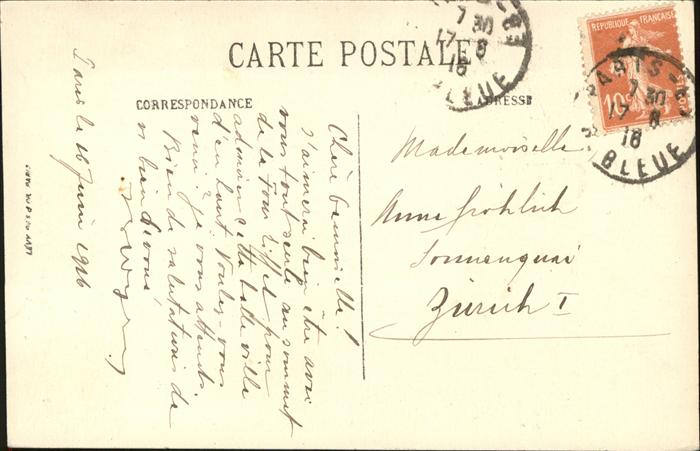 CARTE POSTALE
CORRESPONDANCE
ADRESSE
RÉPUBLIQUE FRANÇAISE
10c
PARIS
7 30
17 6
16
BLEUE
7 30
17 6
16
BLEUE
Paris le 16 Juin 1916
Chère demoiselle!
J'aimerai bien être avec
vous tout seule au sommet
de la Tour Eiffel pour
admirer cette belle ville
d'en haut. Voulez-vous
venir, je vous attends.
Bien de salutations de
vs bien dévoué
Mademoiselle
Anna Fröhlich
Sonnenquai
Zürich I